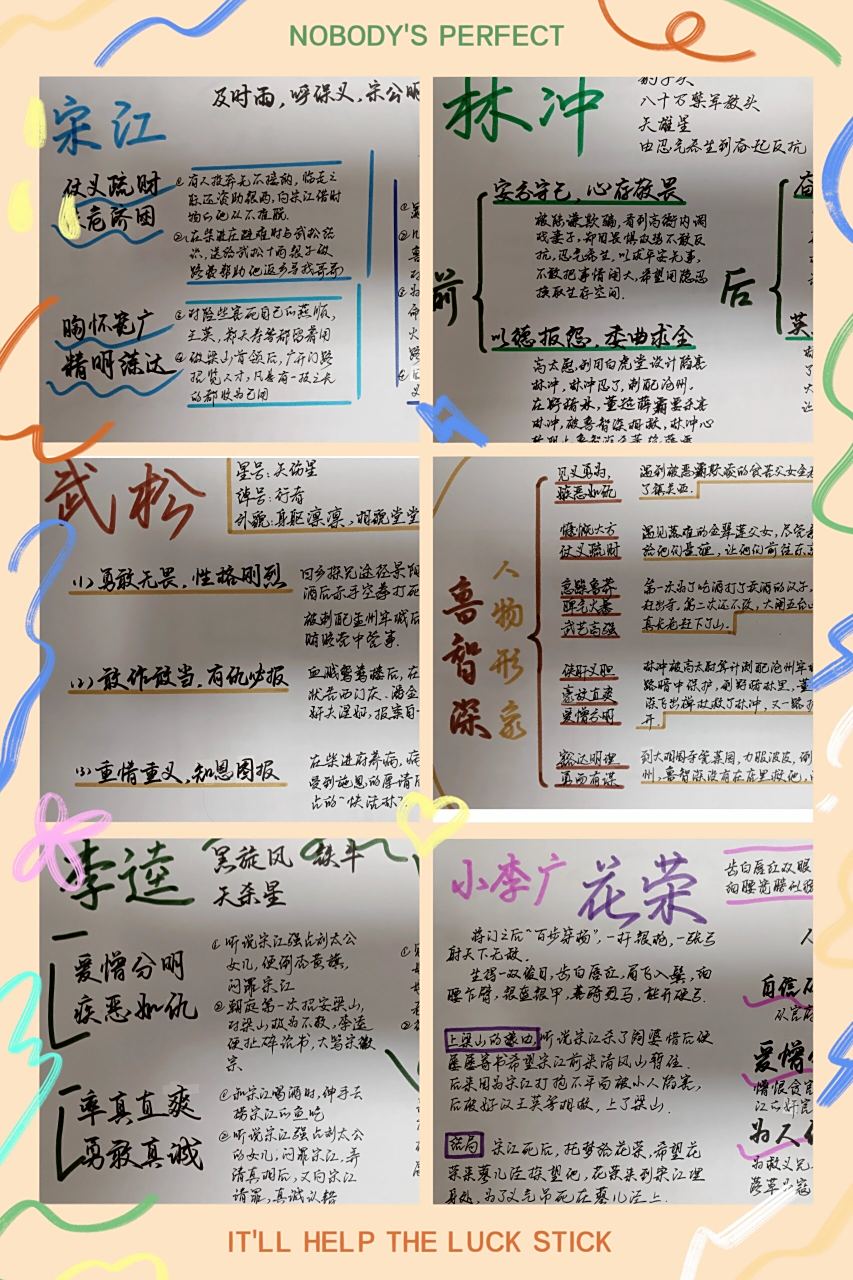 NOBODY'S PERFECT
宋江
及时雨,呼保义,宋公明
仗义疏财
危济困
①有人投奔无不接纳,临走之
际还资助银两,向宋江借财
物的他从不推脱.
②在柴进庄避难时与武松结
识,送给武松十两银子做
路费帮助他返乡寻找哥哥
胸怀宽广
精明练达
①对险些害死自己的燕顺,
王英,郑天寿等都留着用
②做梁山首领后,广开门路
招贤人才,凡是有一技之长
的都收为己用
林冲
豹子头
八十万禁军教头
天雄星
由忍气吞生到奋起反抗
前
安分守己,心存敬畏
被陆谦欺骗,看到高衙内调
戏妻子,却因畏惧权势不敢反
抗,忍气吞生,以求平安无事,
不敢把事情闹大,希望用隐忍
换取生存空间.
以德报怨,委曲求全
高太尉,利用白虎堂设计陷害
林冲,林冲忍了,刺配沧州.
在野猪林,董超薛霸要杀害
林冲,被鲁智深相救,林冲心
后
武松
星号:天伤星
绰号:行者
外貌:身躯凛凛,相貌堂堂
(1)勇敢无畏,性格刚烈
回乡探兄途径景阳
酒后赤手空拳打死
被刺配孟州牢城后
(2)敢作敢当,有仇必报
血溅鸳鸯楼后,在
(3)重情重义,知恩图报
在柴进府养病,病
受到施恩的厚情后
占的"快活林"
鲁智深
人物形象
见义勇为,
嫉恶如仇
遇到被恶霸欺凌的
了镇关西.
慷慨大方
仗义疏财
遇见落难的金翠莲父女,尽管
给他们盘缠,让他们前往东
脾气火暴
武艺高强
第一次为了吃酒打了卖酒的汉子,
赶出寺,第二次还不改,大闹五台山
真长老赶下了山.
侠肝义胆
豪放直爽
爱憎分明
林冲被高太尉算计刺配沧州牢
路暗中保护,到野猪林里,董
深飞出禅杖救了林冲,又一路
豁达明理
勇而有谋
到大相国寺管菜园,力服泼皮,
李逵
黑旋风 铁牛
天杀星
爱憎分明
疾恶如仇
①听说宋江强占刘太公
女儿,便倒杏黄旗,
问罪宋江
②朝庭第一次招安梁山,
对梁山极为不敬,李逵
便扯碎诏书,大骂宋徽
宗.
率真直爽
勇敢真诚
①和宋江喝酒时,伸手去
捞宋江的鱼吃
②听说宋江强占刘太公
的女儿,问罪宋江,弄
清真相后,又向宋江
请罪,真诚认错
小李广 花荣
齿白唇红双眼
细腰宽膀似猿
将门之后"百步穿杨",一杆银枪,一张弓
射天下无敌.
生得一双俊目,齿白唇红,眉飞入鬓,细
腰乍臂,银盔银甲,善骑烈马,能开硬弓.
上梁山的缘由 听说宋江杀了阎婆惜后便
屡屡写书希望宋江前来清风山暂住.
后来因为宋江打抱不平而被小人陷害,
后被好汉王英等相救,上了梁山.
结局 宋江死后,托梦给花荣,希望花
荣来蓼儿洼探望他,花荣来到宋江埋
身处,为了义气吊死在蓼儿洼上.
自信
爱憎
憎恨贪官
为人
为救义兄
落草为寇
IT'LL HELP THE LUCK STICK